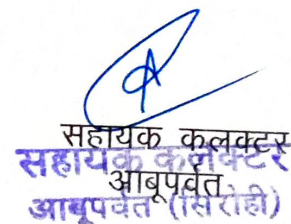 सहायक कलक्टर
सहायक कलेक्टर
आबूपर्वत
आबूपर्वत (सिरोही)